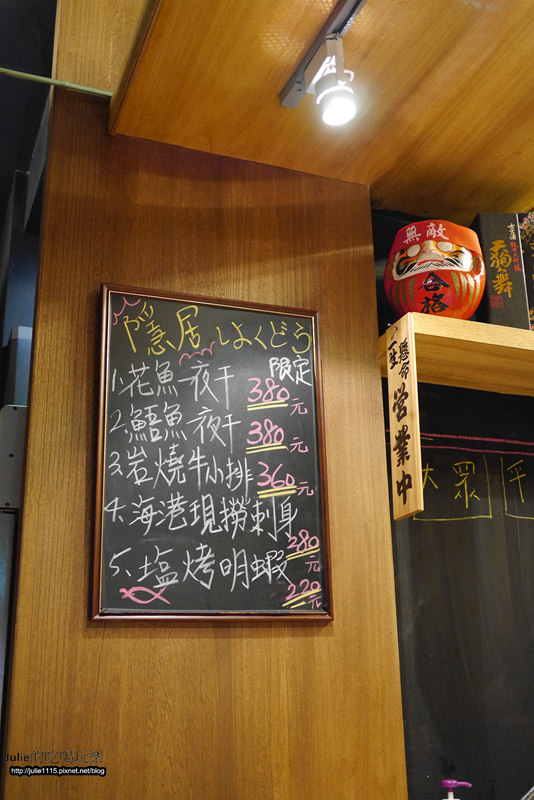 隱居しよくどう
限定
1.花魚一夜干 380元
2.鯃魚一夜干 380元
3.岩燒牛小排 360元
4.海港現撈刺身 280元
5.塩烤明蝦 220元
無敵
合格
天狗舞
一生懸命
營業中
大眾
平
Julie的吃喝玩樂
http://julie1115.pixnet.net/blog